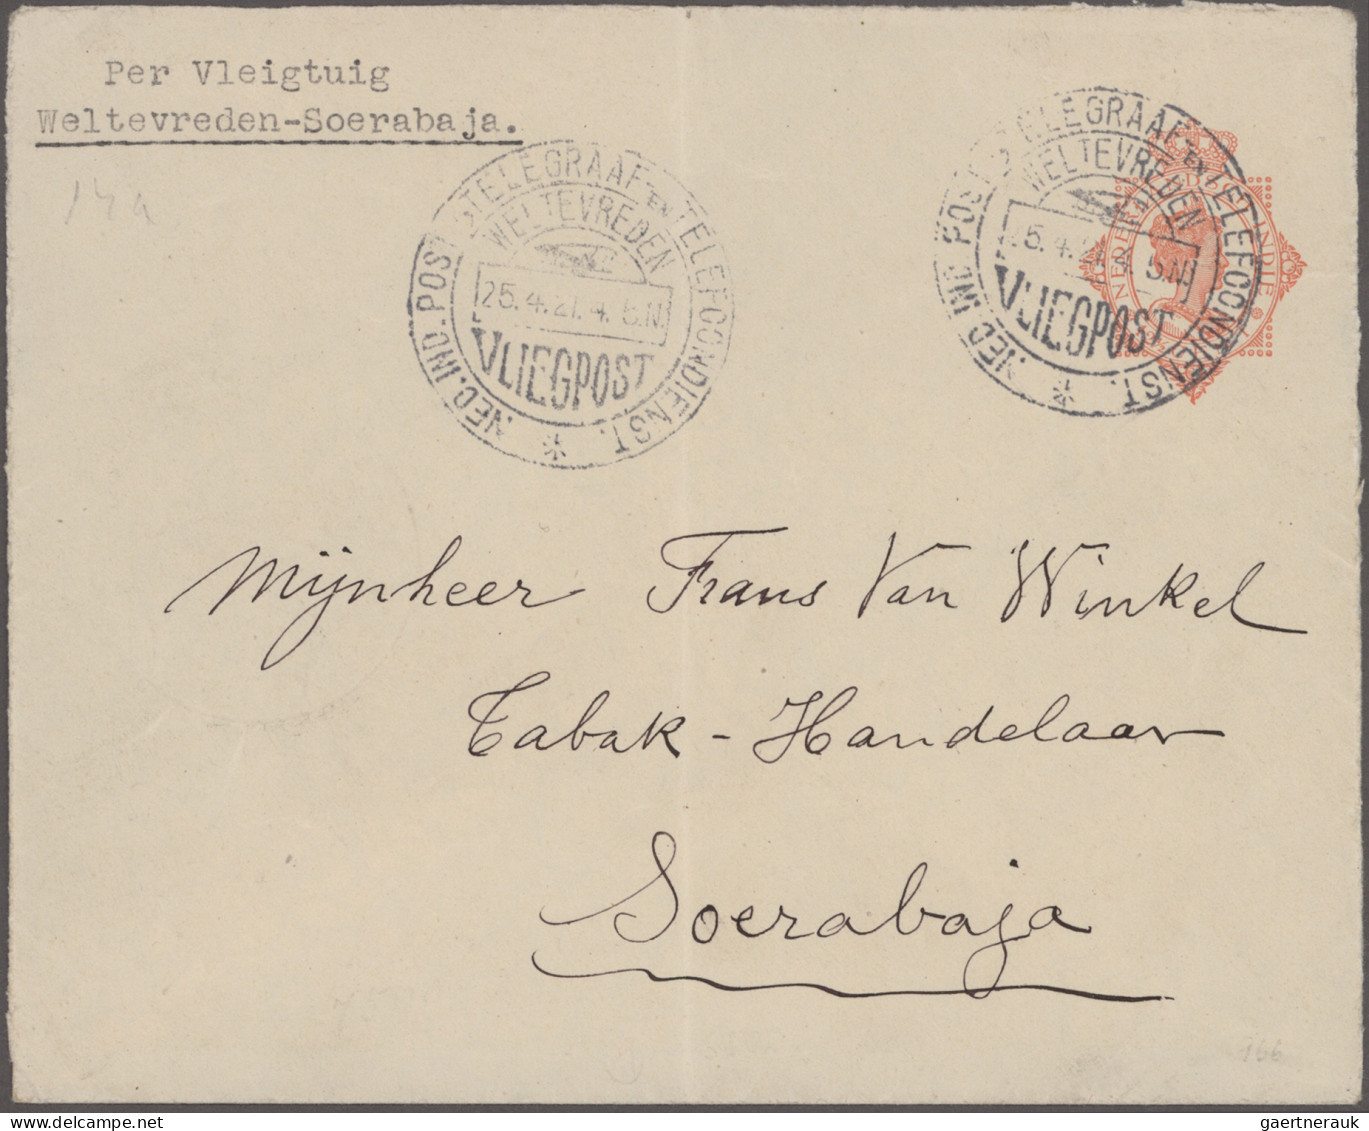 Per Vleigtuig
Weltevreden-Soerabaja.
14a
NED.IND. POST-TELEGRAAF EN TELEFOONDIENST.
WELTEVREDEN
25.4.21.4.5.N.
VLIEGPOST
NED.IND. POST-TELEGRAAF EN TELEFOONDIENST.
WELTEVREDEN
25.4.21.4.5.N.
VLIEGPOST
Mijnheer Frans Van Winkel
Tabak-Handelaar
Soerabaja
166
gaertnerauk